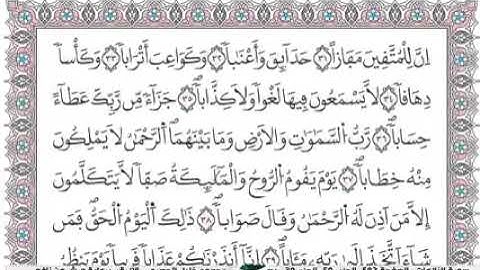 اِنَّ لِلْمُتَّقِينَ مَفَازاً ٣١ حَدَآئِقَ وَأَعْنَٰباً ٣٢ وَكَوَاعِبَ أَتْرَاباً ٣٣ وَكَأْساً
دِهَاقاً ٣٤ لَّا يَسْمَعُونَ فِيهَا لَغْواً وَلَا كِذَّاباً ٣٥ جَزَآءً مِّن رَّبِّكَ عَطَآءً
حِسَاباً ٣٦ رَّبُّ اُلسَّمَٰوَٰتِ وَالْأَرْضِ وَمَا بَيْنَهُمَا اَلرَّحْمَٰنُ لَا يَمْلِكُونَ
مِنْهُ خِطَاباً ٣٧ يَوْمَ يَقُومُ الرُّوحُ وَالْمَلَٰٓئِكَةُ صَفّاً لَّا يَتَكَلَّمُونَ
إِلَّا مَنَ اَذِنَ لَهُ الرَّحْمَٰنُ وَقَالَ صَوَاباً ٣٨ ذَٰلِكَ اَلْيَوْمُ الْحَقُّ فَمَن
شَآءَ اَتَّخَذَ إِلَىٰ رَبِّهِۦ مَـَٔاباً ٣٩ اِنَّآ أَنذَرْنَٰكُمْ عَذَاباً قَرِيباً يَوْمَ يَنظُرُ